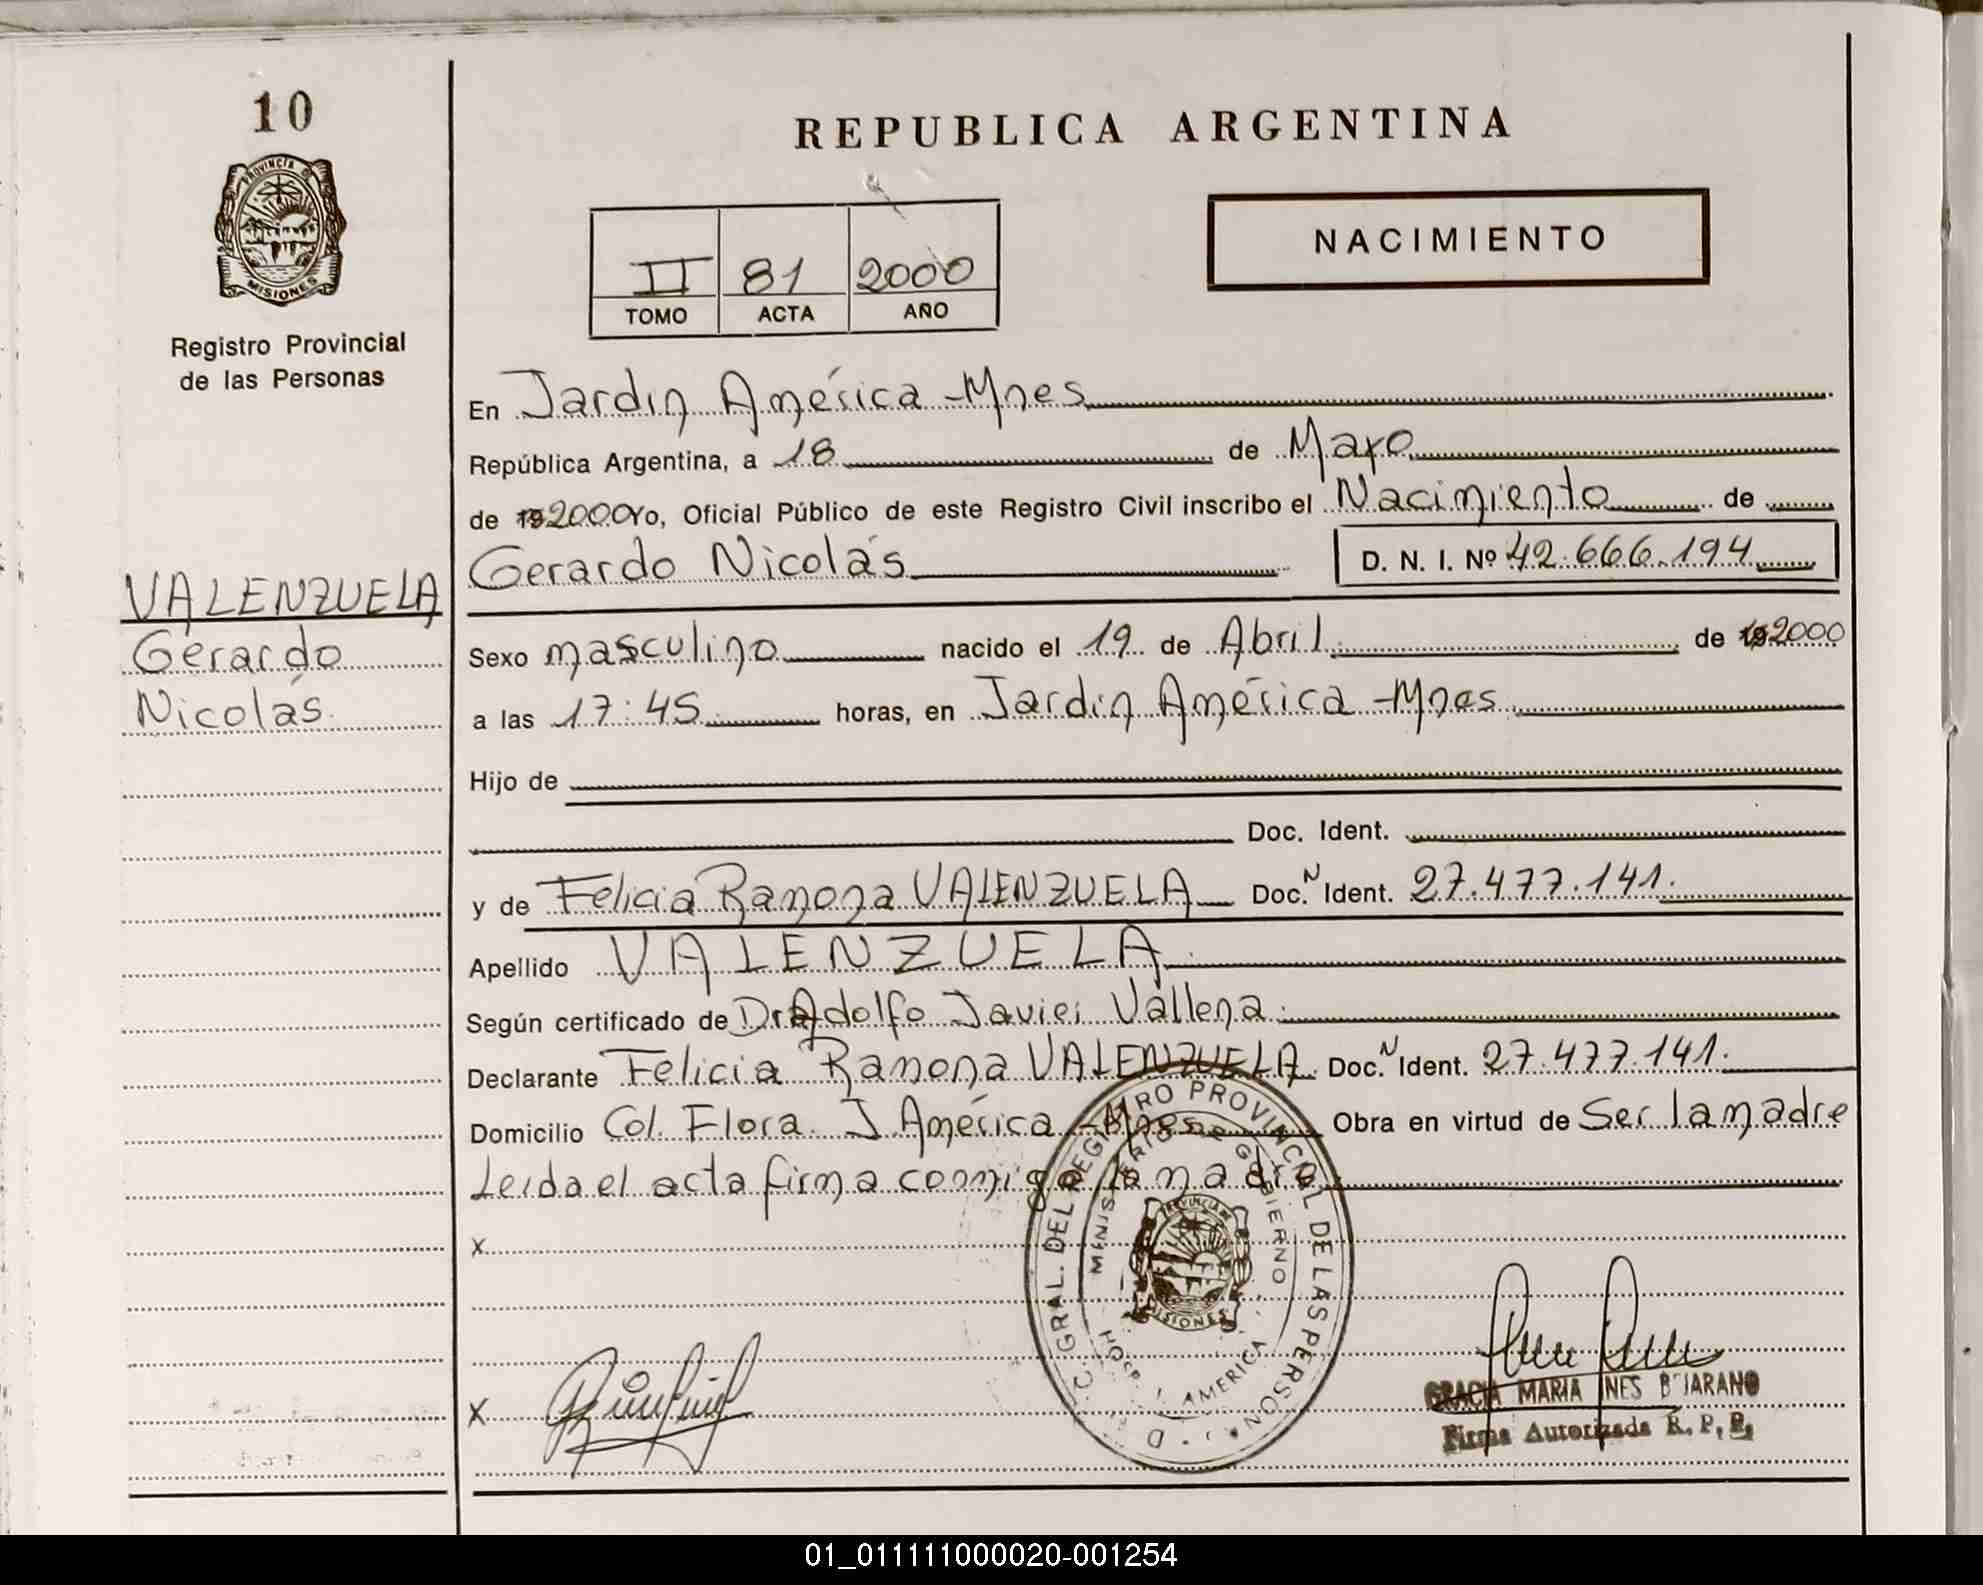 10
REPUBLICA ARGENTINA
PROVINCIA DE
MISIONES
Registro Provincial
de las Personas
NACIMIENTO
II 81 2000
TOMO ACTA AÑO
En Jardin América - Mnes
República Argentina, a 18 de Mayo
de 192000 Yo, Oficial Público de este Registro Civil inscribo el Nacimiento de
Gerardo Nicolás D. N. I. Nº 42.666.194
VALENZUELA
Gerardo
Nicolás
Sexo masculino nacido el 19 de Abril de 192000
a las 17:45 horas, en Jardin América - Mnes
Hijo de
Doc. Ident.
y de Felicia Ramona VALENZUELA Doc. N Ident. 27.477.141.
Apellido VALENZUELA
Según certificado de Dr Adolfo Javier Vallena
Declarante Felicia Ramona VALENZUELA Doc. N Ident. 27.477.141.
Domicilio Col. Flora. J. América - Mnes Obra en virtud de Ser la madre
Leida el acta firma conmigo la madre
x
x
GRAL. DEL REGISTRO PROVINCIAL DE LAS PERSON
MINISTERIO DE GOBIERNO
PROVINCIA DE
MISIONES
HOSP. AMERICA
GRACIA MARIA INES BEJARANO
Firma Autorizada R. P. P.
01_011111000020-001254